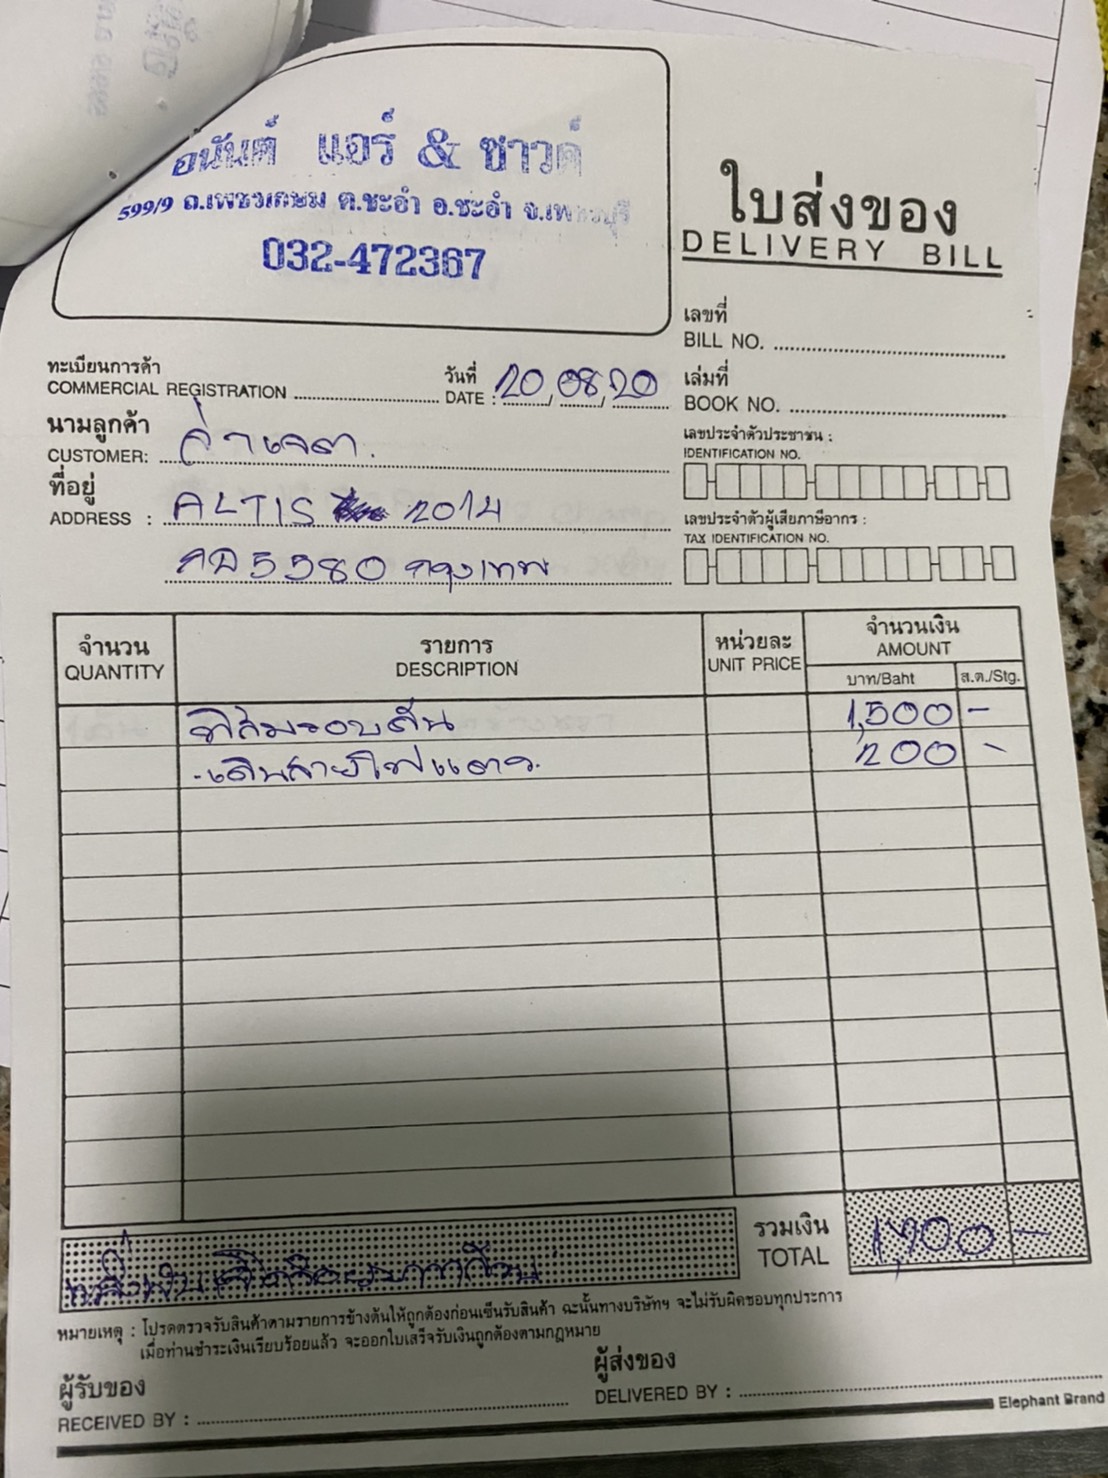 อนันต์ แอร์ & ซาวด์
599/9 ถ.เพชรเกษม ต.ชะอำ อ.ชะอำ จ.เพชรบุรี
032-472367
ใบส่งของ
DELIVERY BILL
เลขที่
BILL NO.
ทะเบียนการค้า
COMMERCIAL REGISTRATION
วันที่
DATE : 20/08/20
เล่มที่
BOOK NO.
นามลูกค้า
CUSTOMER:
เลขประจำตัวประชาชน :
IDENTIFICATION NO.
ที่อยู่
ADDRESS : ALTIS 2014
5580 กรุงเทพ
เลขประจำตัวผู้เสียภาษีอากร :
TAX IDENTIFICATION NO.
จำนวน
QUANTITY
รายการ
DESCRIPTION
หน่วยละ
UNIT PRICE
จำนวนเงิน
AMOUNT
บาท/Baht
ส.ต./Stg.
ฟิล์มรอบคัน 1,500 -
-เดินสายไฟ 200 -
รวมเงิน
TOTAL
1,700 -
หมายเหตุ : โปรดตรวจรับสินค้าตามรายการข้างต้นให้ถูกต้องก่อนเซ็นรับสินค้า ฉะนั้นทางบริษัทฯ จะไม่รับผิดชอบทุกประการ
เมื่อท่านชำระเงินเรียบร้อยแล้ว จะออกใบเสร็จรับเงินถูกต้องตามกฎหมาย
ผู้รับของ
RECEIVED BY :
ผู้ส่งของ
DELIVERED BY :
Elephant Brand